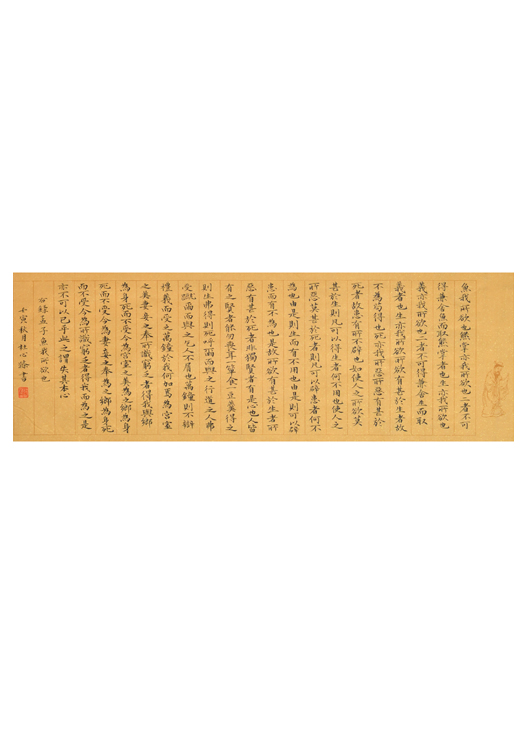 魚我所欲也熊掌亦我所欲也二者不可
得兼舍魚而取熊掌者也生亦我所欲也
義亦我所欲也二者不可得兼舍生而取
義者也生亦我所欲所欲有甚於生者故
不為苟得也死亦我所惡所惡有甚於
死者故患有所不辟也如使人之所欲莫
甚於生則凡可以得生者何不用也使人之
所惡莫甚於死者則凡可以辟患者何不
為也由是則生而有不用也由是則可以辟
患而有不為也是故所欲有甚於生者所
惡有甚於死者非獨賢者有是心也人皆
有之賢者能勿喪耳一簞食一豆羹得之
則生弗得則死呼爾而與之行道之人弗
受蹴爾而與之乞人不屑也萬鐘則不辯
禮義而受之萬鐘於我何加焉為宮室
之美妻妾之奉所識窮乏者得我與鄉
為身死而不受今為宮室之美為之鄉為身
死而不受今為妻妾之奉為之鄉為身死
而不受今為所識窮乏者得我而為之是
亦不可以已乎此之謂失其本心
右錄孟子魚我所欲也
壬寅秋月杜心
書